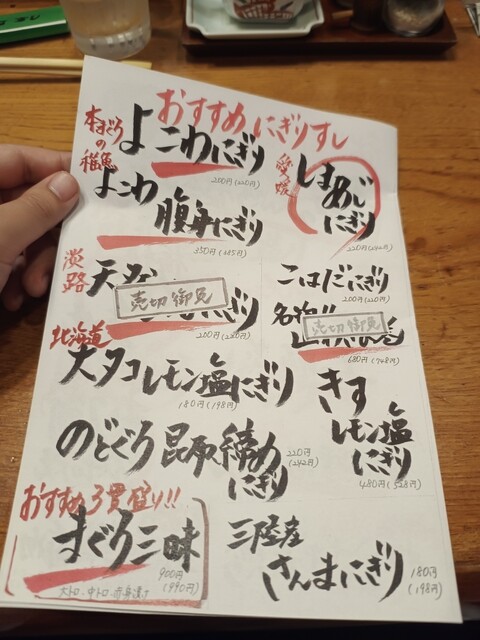 おすすめにぎりすし
本まぐろの稚魚
よこわにぎり
200円(220円)
愛媛
しまあじ
にぎり
220円(242円)
よこわ
腹身にぎり
350円(385円)
淡路
売切御免
200円(220円)
こはだにぎり
200円(220円)
名物
売切御免
680円(748円)
北海道
大タコレモン塩にぎり
180円(198円)
きす
レモン塩
にぎり
480円(528円)
のどぐろ昆布〆
にぎり
220円
(242円)
おすすめ3貫盛り!!
まぐろ三昧
900円
(990円)
大トロ・中トロ・赤身漬け
三陸産
さんまにぎり
180円
(198円)